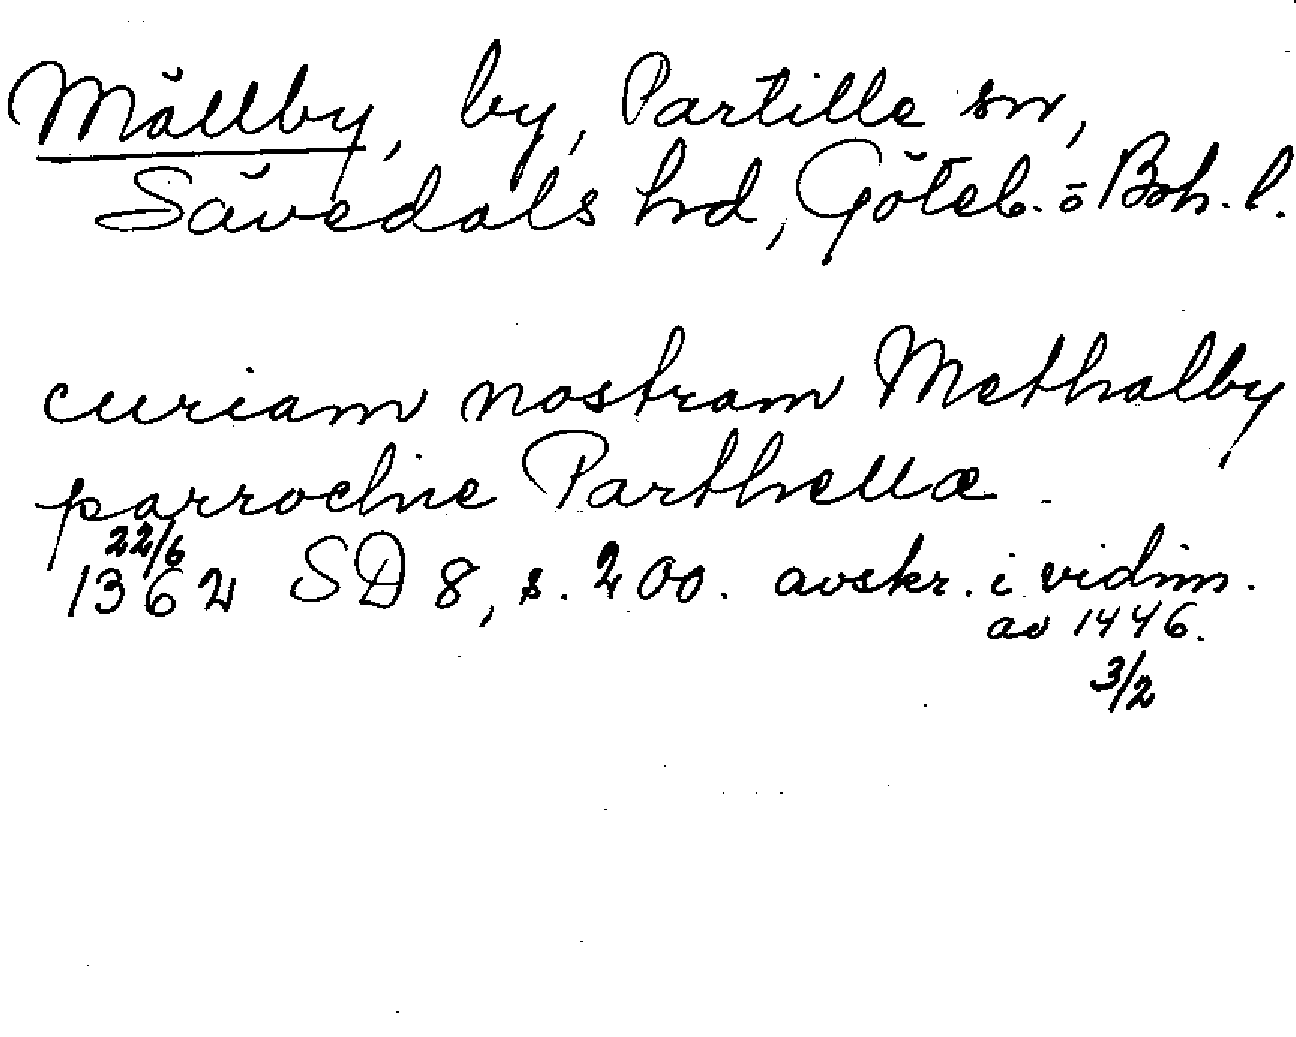 Mällby, by, Partille sn,
Sävedals hrd, Göteb. o Boh. l.
curiam nostram Methalby
parrochie Parthellæ.
22/6
1362 SD 8, s. 200. avskr. i vidim.
av 1446.
3/2